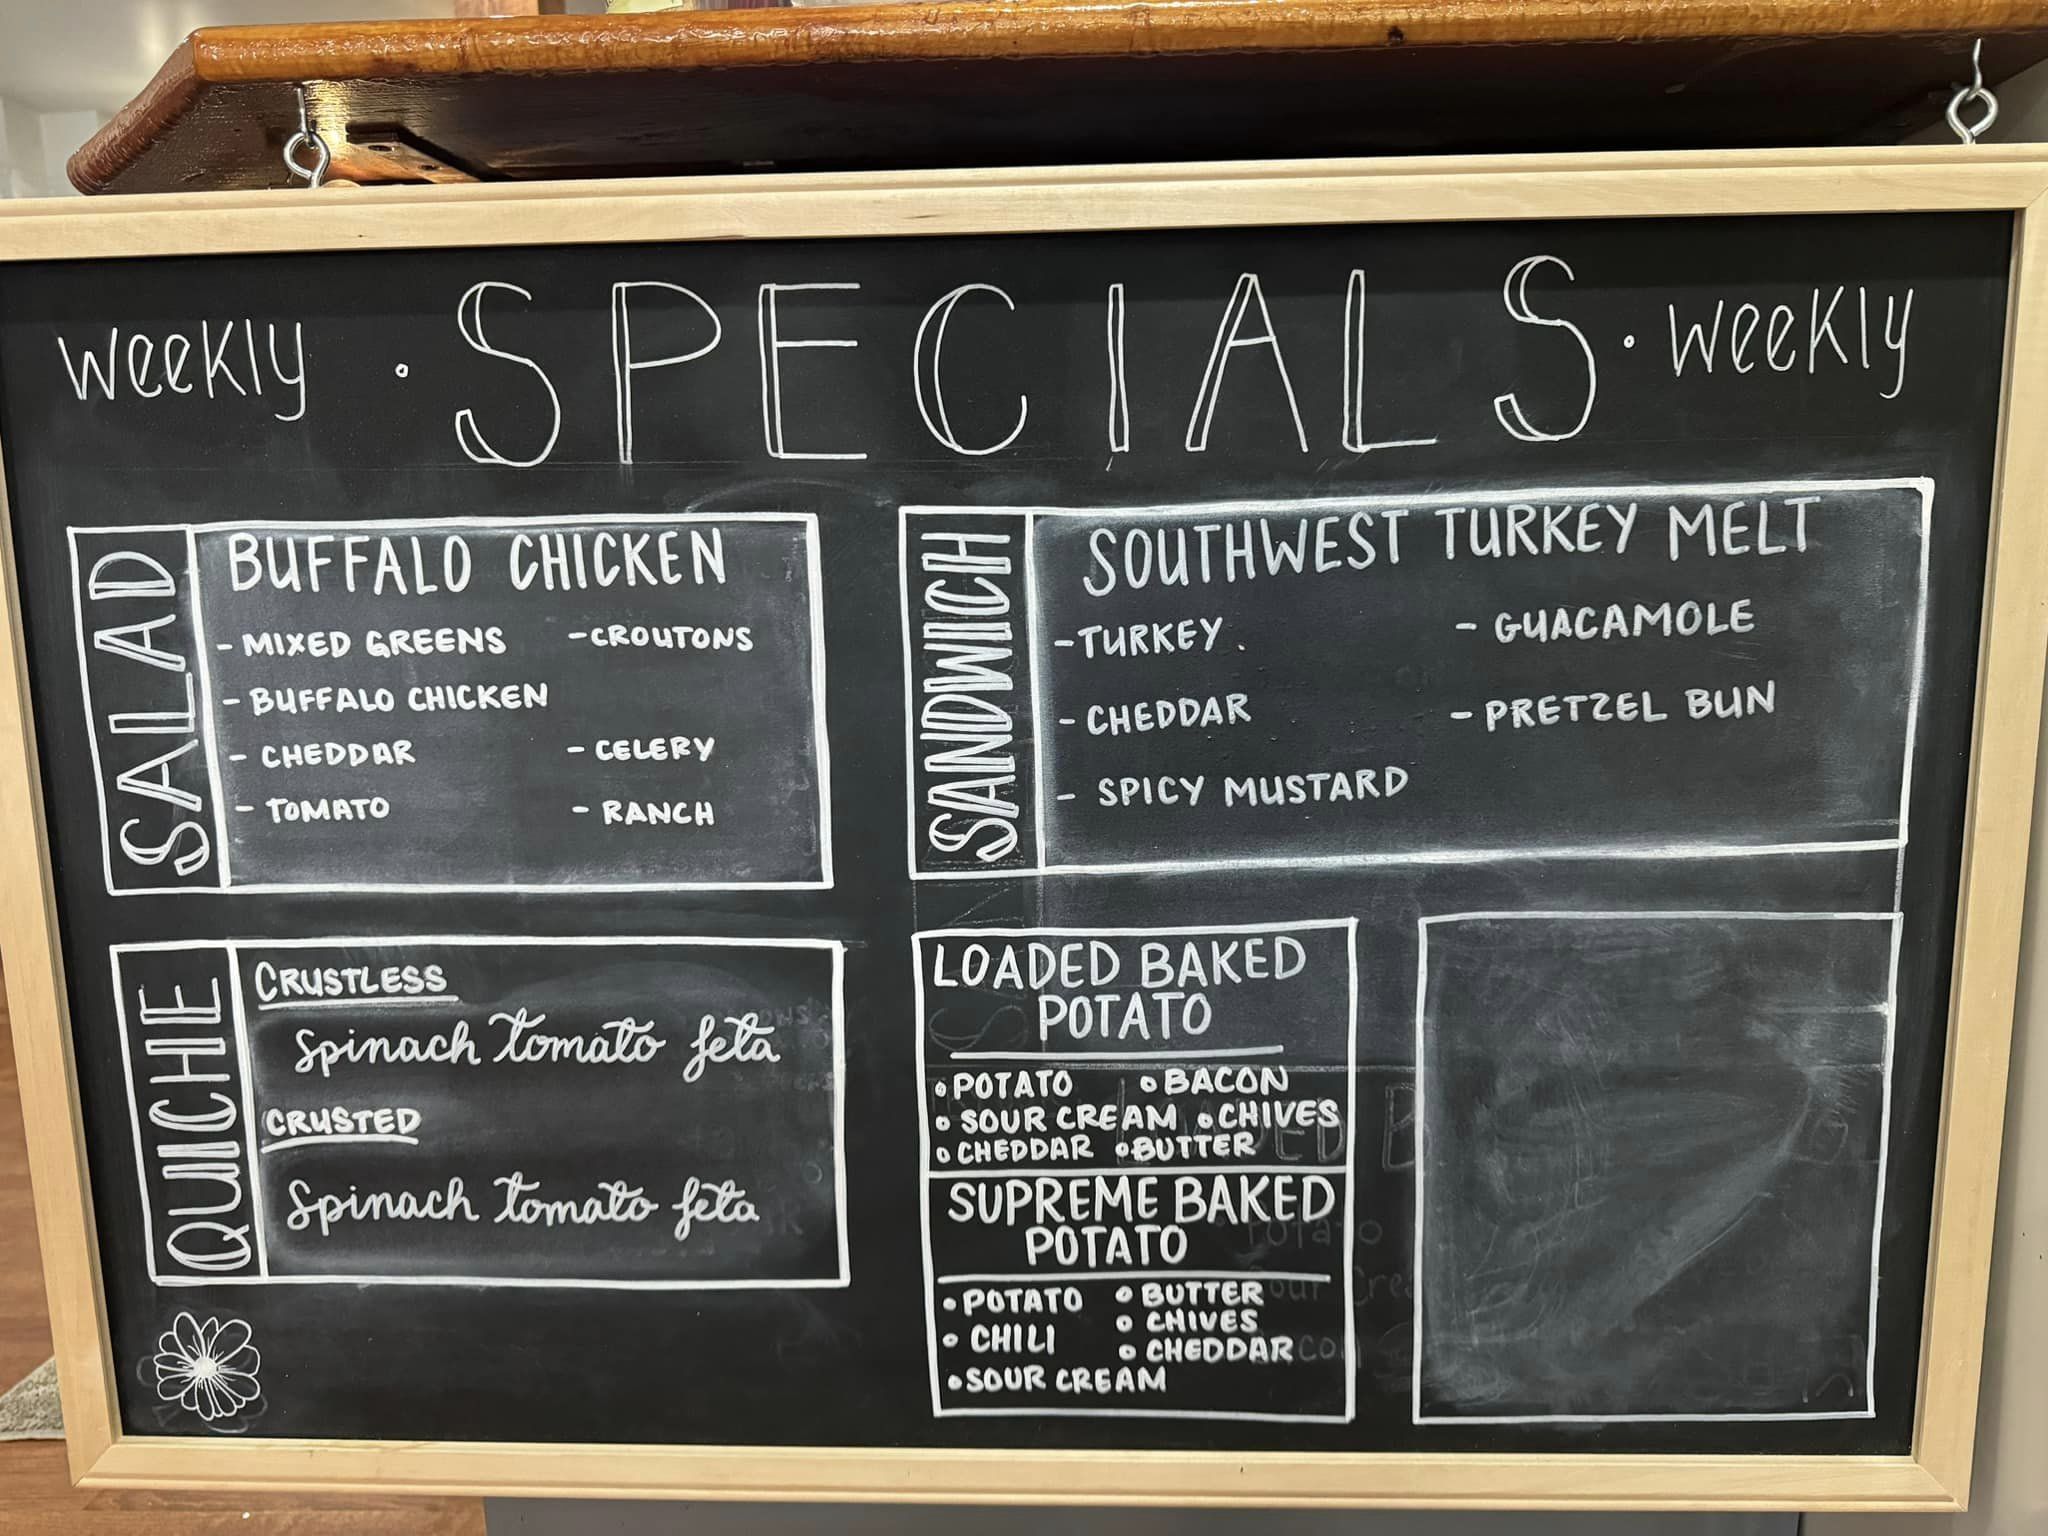 weekly · SPECIALS · weekly
SALAD
BUFFALO CHICKEN
- MIXED GREENS - CROUTONS
- BUFFALO CHICKEN
- CHEDDAR - CELERY
- TOMATO - RANCH
SANDWICH
SOUTHWEST TURKEY MELT
- TURKEY. - GUACAMOLE
- CHEDDAR - PRETZEL BUN
- SPICY MUSTARD
QUICHE
CRUSTLESS
Spinach tomato feta
CRUSTED
Spinach tomato feta
LOADED BAKED
POTATO
• POTATO • BACON
• SOUR CREAM • CHIVES
• CHEDDAR • BUTTER
SUPREME BAKED
POTATO
• POTATO • BUTTER
• CHILI • CHIVES
• CHEDDAR
• SOUR CREAM